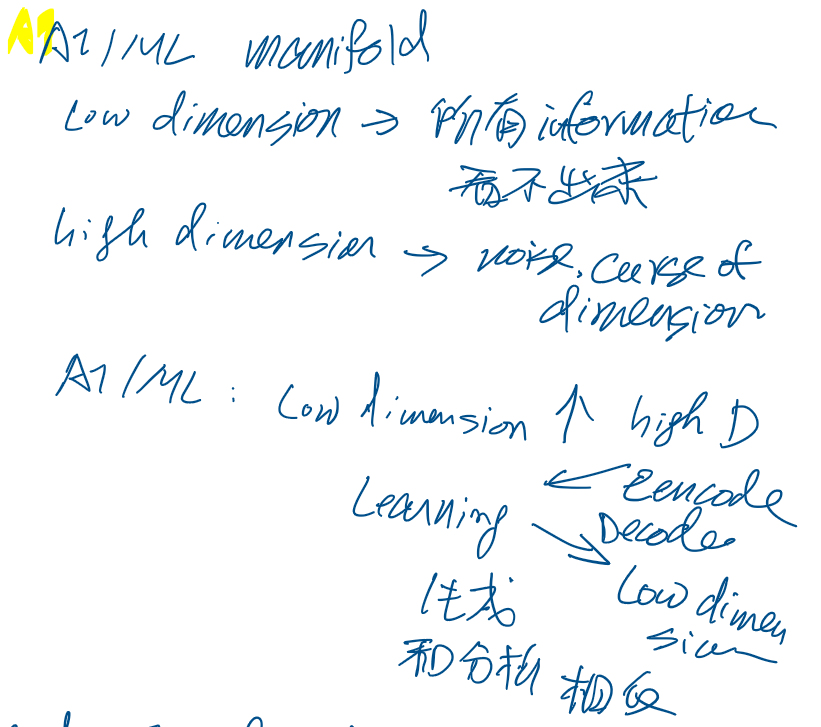 AI/ML manifold
Low dimension → 所有information
看不出来
high dimension → noise, curse of
dimension
AI/ML : Low dimension ↑ high D
← Eencode
Learning
Decode
↘ Low dimen
生成
sion
和分析 相反